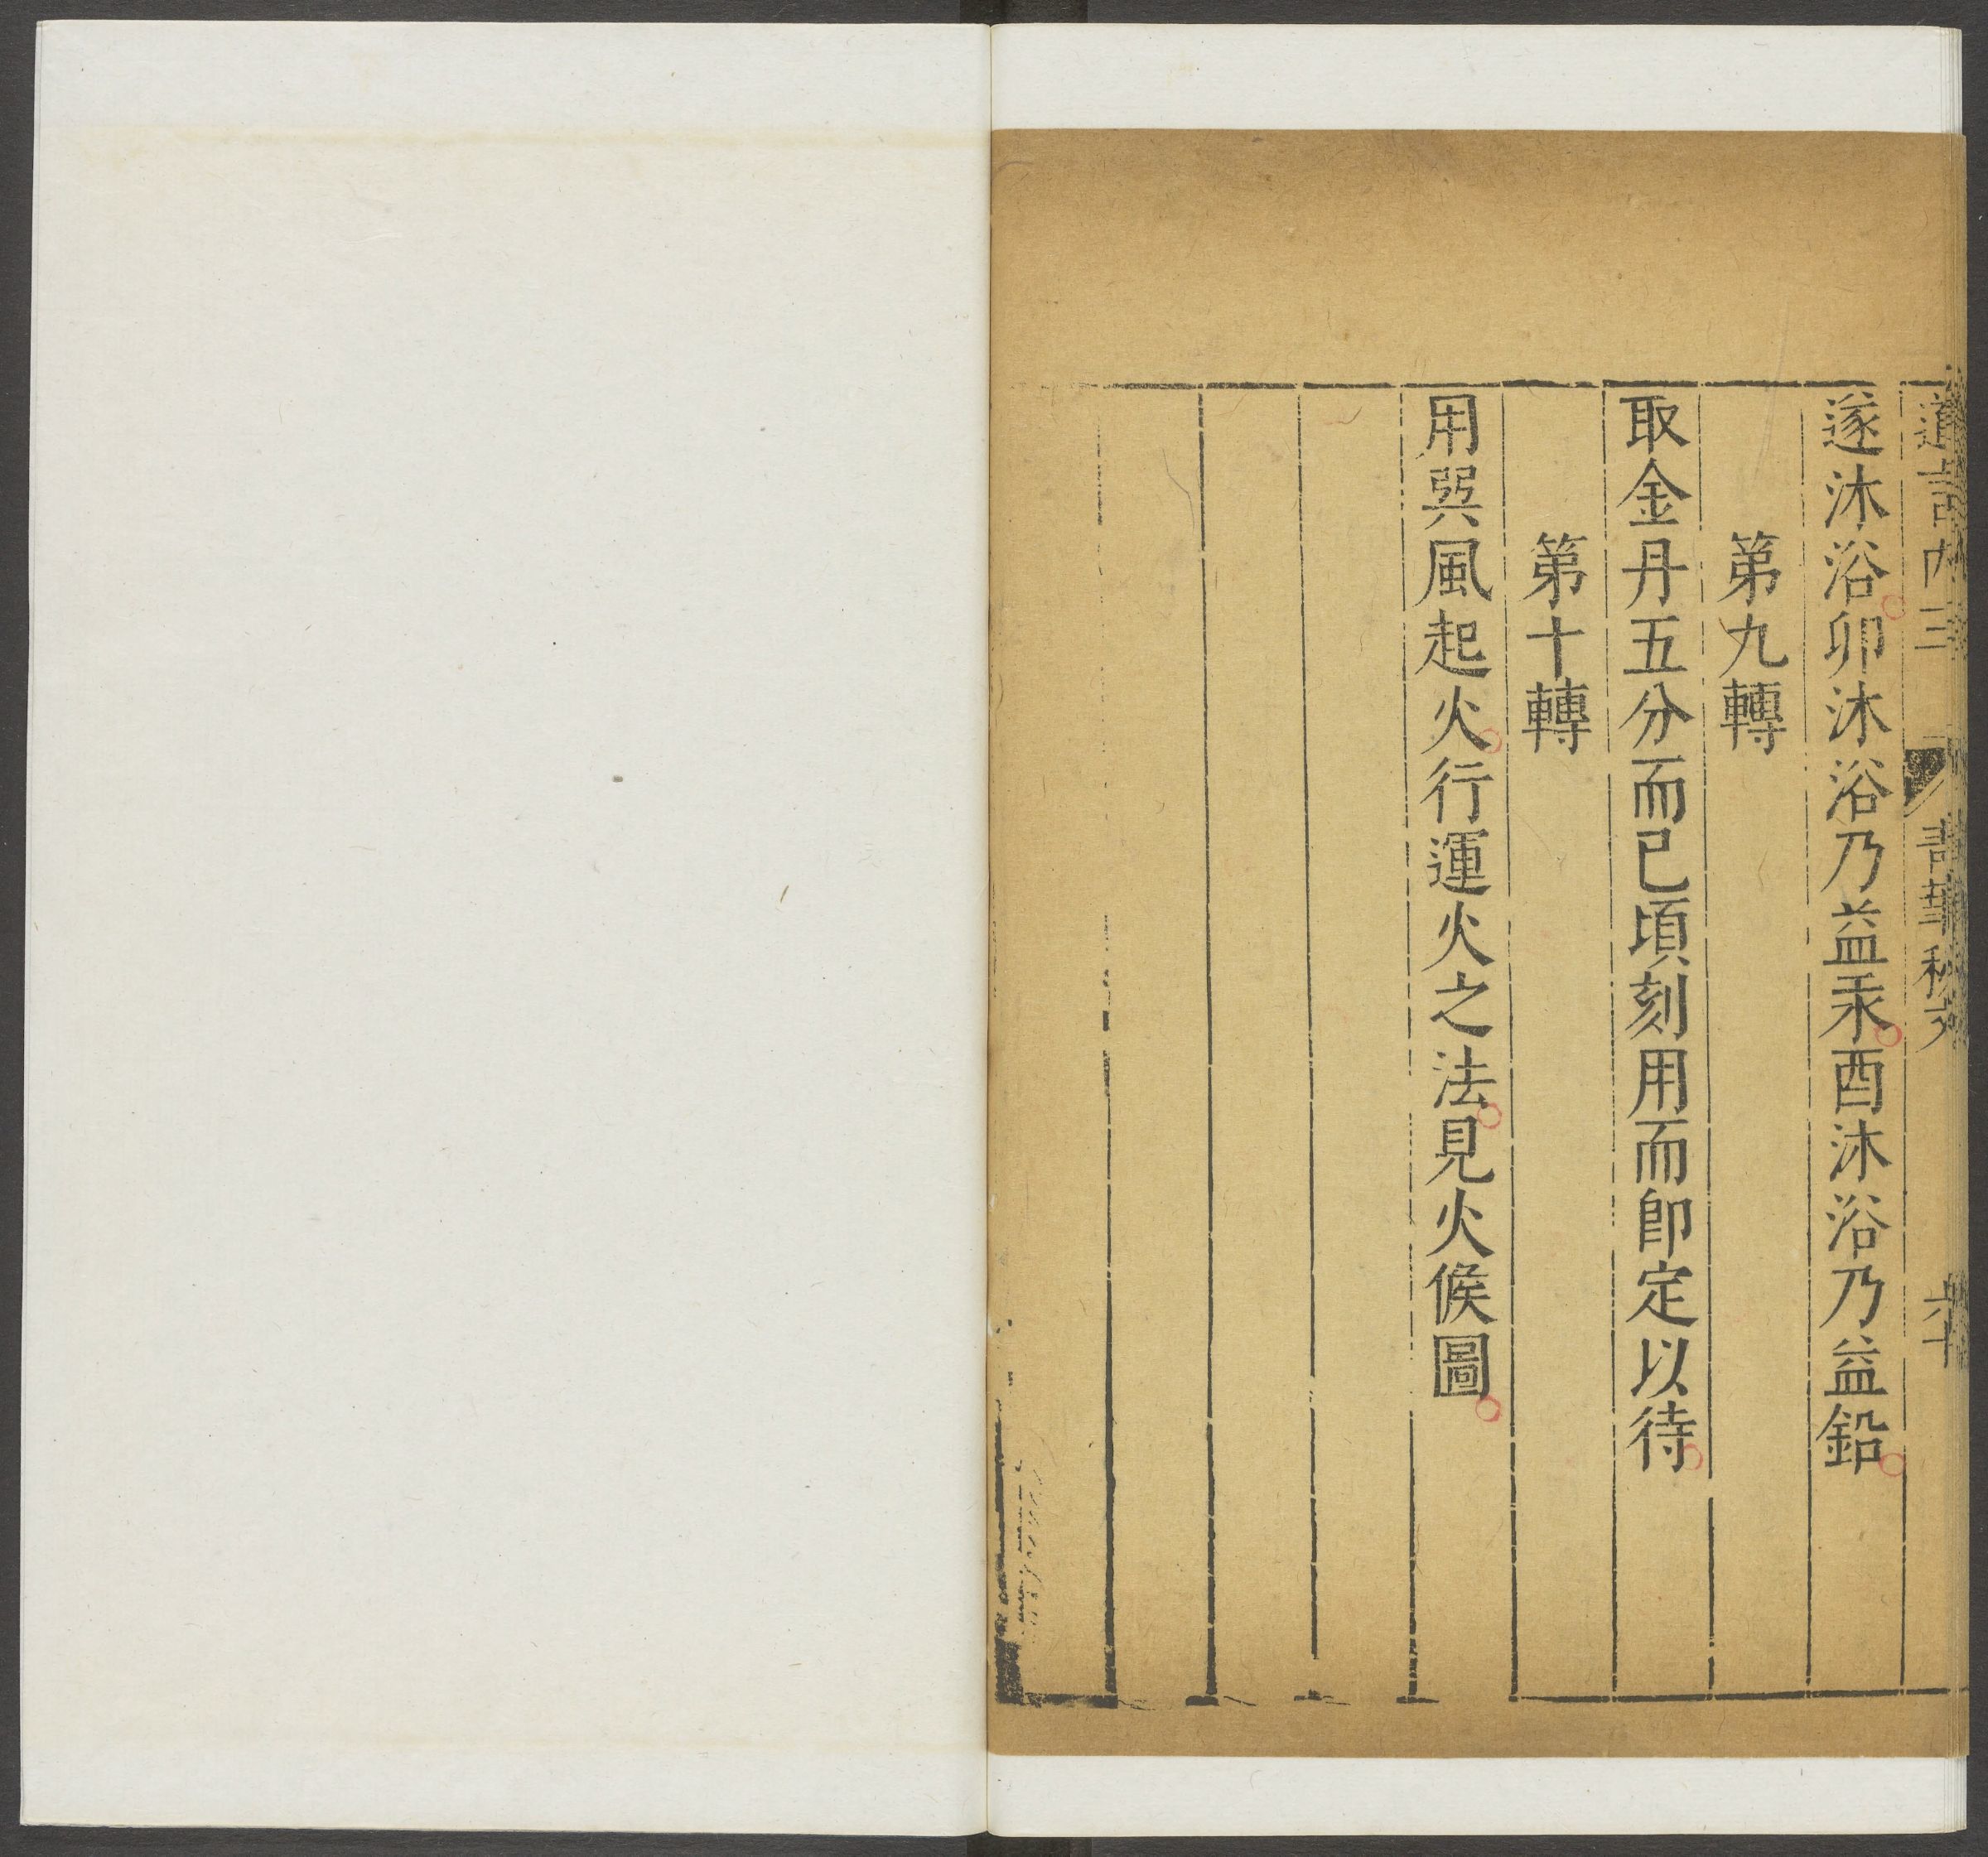 道言内三 青華秘文 六十
遂沐浴卯沐浴乃益汞酉沐浴乃益鉛
第九轉
取金丹五分而已頃刻用而卽定以待
第十轉
用巽風起火行運火之法見火候圖